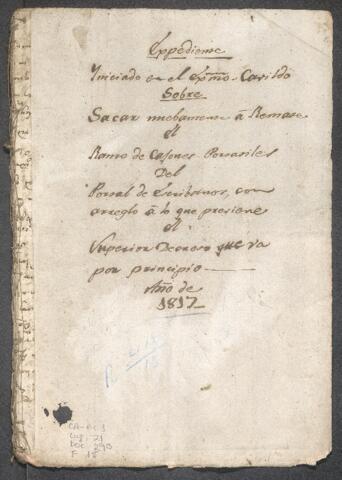 Expediente
Iniciado en el Exmo. Cavildo
Sobre
Sacar nuebamente á Remate
el
Ramo de Cajones Portatiles
Del
Portal de Escribanos, con
arreglo á lo que previene
el
Superior Decreto que va
por principio
Año de
1817
CA-GC3
21
DOC
F